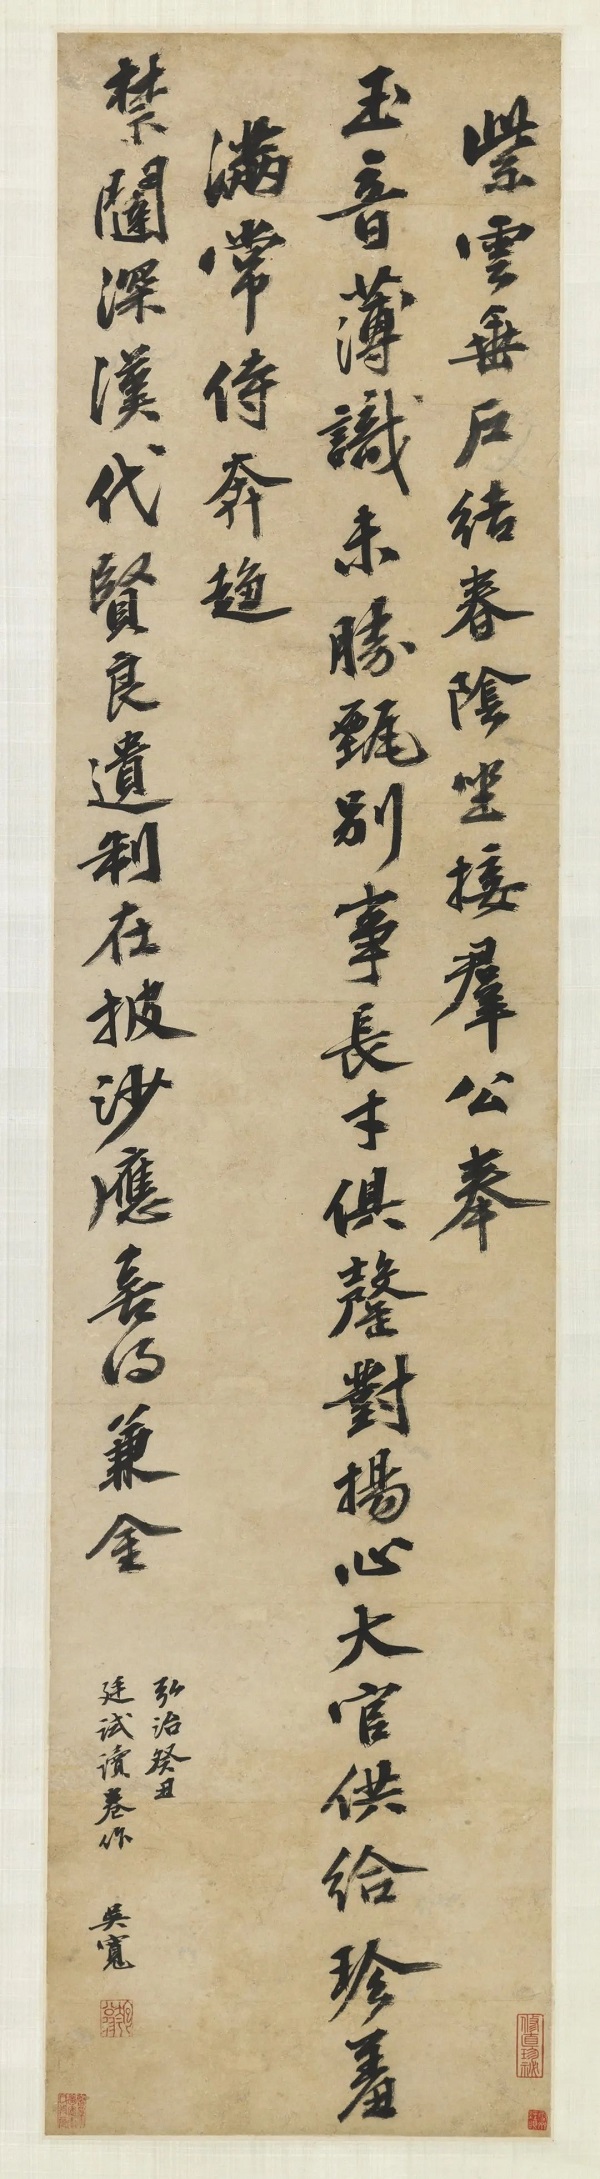 紫雲垂戶結春陰坐接羣公奉
玉音薄識未勝甄別事長才俱罄對揚心大官供給珍羞
滿常侍奔趨
禁闥深漢代賢良遺制在披沙應喜得兼金
弘治癸丑
廷試讀卷作 吳寬